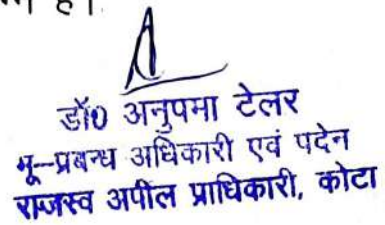 है।
डॉ0 अनुपमा टेलर
भू-प्रबन्ध अधिकारी एवं पदेन
राजस्व अपील प्राधिकारी, कोटा